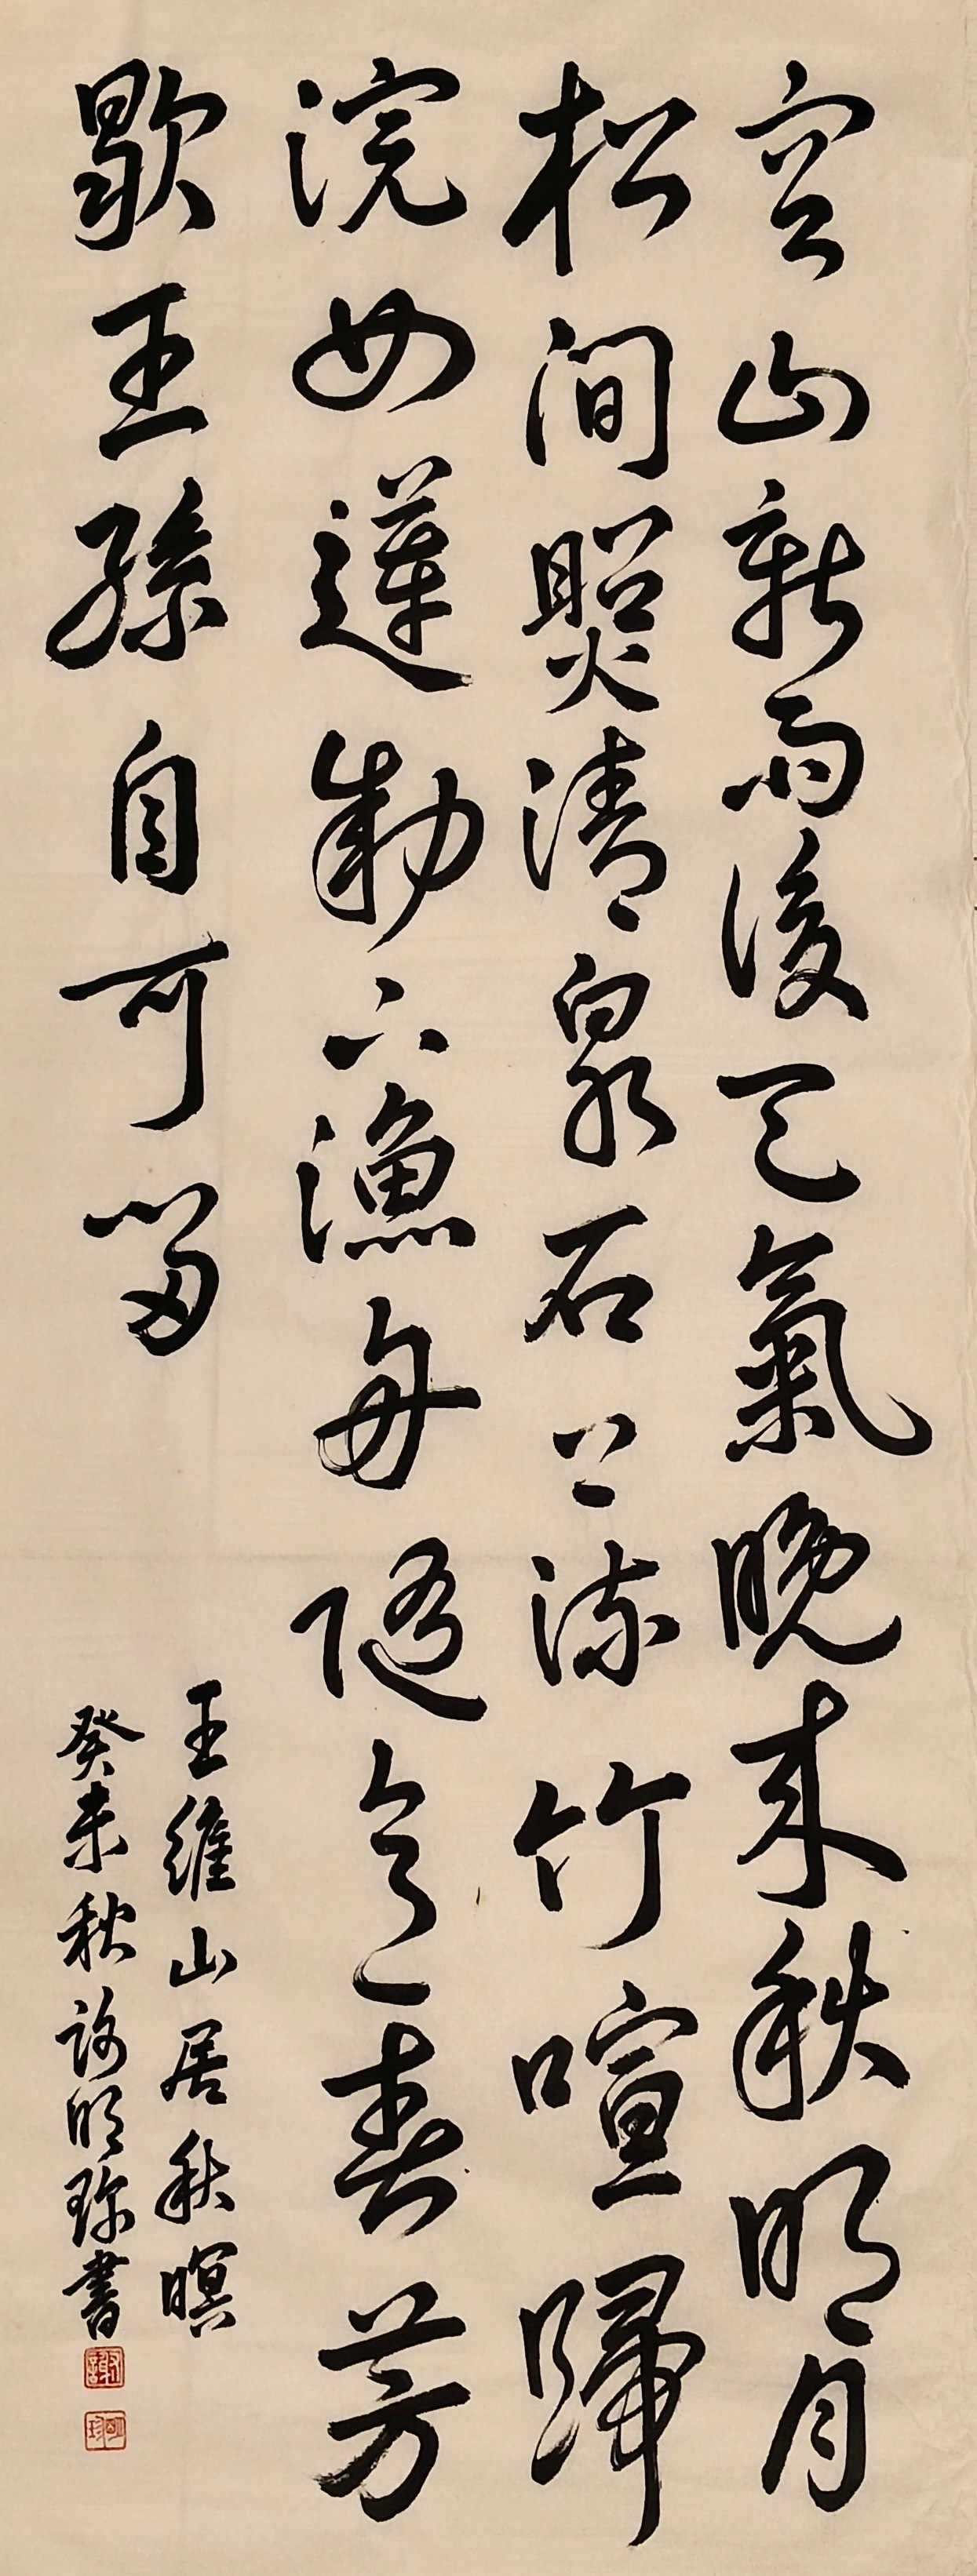 空山新雨後天氣晚來秋明月
松間照清泉石上流竹喧歸
浣女蓮動下漁舟隨意春芳
歇王孫自可留
王維山居秋暝
癸未秋謝明珍書
謝
明珍